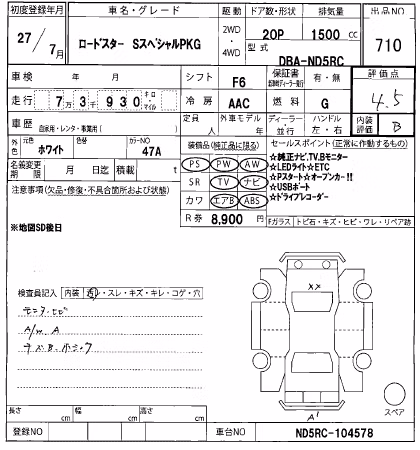 初度登録年月
27 / 7月
車名・グレード
ロードスター SスペシャルPKG
駆動
2WD ・ 4WD
ドア数・形状
20P
排気量
1500 cc
型式
DBA-ND5RC
出品NO
710
車検 年 月
シフト F6
保証書 有・無
評価点
4.5
走行 7万3千930 キロ・マイル
冷房 AAC
燃料 G
車歴 自家用・レンタ・事業用( )
定員 人
外車モデル 年
ディーラー・並行
ハンドル 左・右
内装評価 B
外色 ホワイト
色替
カラーNO 47A
名義変更期限 月 日迄
積載 t
装備品(純正品に限る)
PS PW AW
SR TV ナビ
カワ エアB ABS
R券 8,900 円
セールスポイント(正常に作動するもの)
☆純正ナビ,TV,Bモニター
☆LEDライト☆ETC
☆Pスタート☆オープンカー!!
☆USBポート
☆ドライブレコーダー
Fガラス トビ石・キズ・ヒビ・ワレ・リペア跡
注意事項(欠品・修復・不具合箇所および状態)
※地図SD後日
検査員記入 内装 ・スレ・キズ・キレ・コゲ・穴
A/W A
××
A1
スペア
長さ cm
幅 cm
高さ cm
登録NO
車台NO
ND5RC-104578